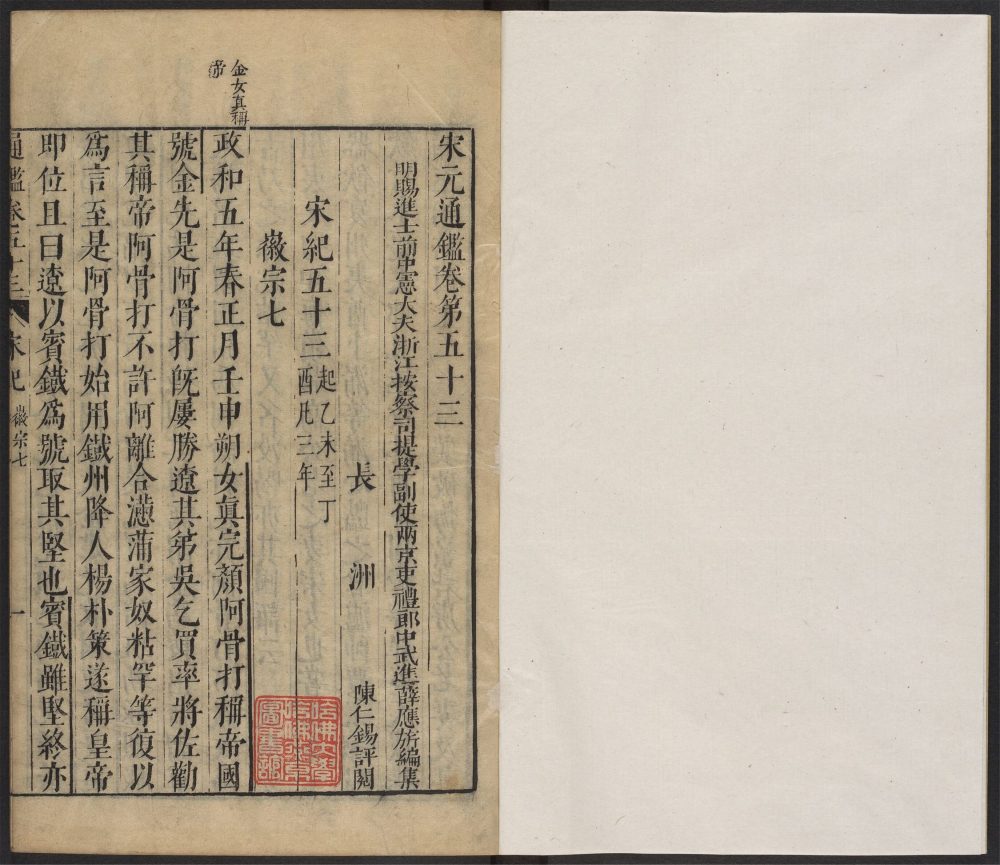 宋元通鑑卷第五十三
明賜進士前中憲大夫浙江按察司提學副使兩京吏禮郎中武進薛應旂編集
長洲 陳仁錫評閱
宋紀五十三 起乙未至丁酉凡三年
徽宗七
金女真稱帝
政和五年春正月壬申朔女眞完顏阿骨打稱帝國
號金先是阿骨打旣屢勝遼其弟吳乞買率將佐勸
其稱帝阿骨打不許阿離合懣蒲家奴粘罕等復以
爲言至是阿骨打始用鐵州降人楊朴策遂稱皇帝
卽位且曰遼以賓鐵爲號取其堅也賓鐵雖堅終亦
通鑑卷五十三 宋紀 徽宗七 一
哈佛大學哈佛燕京圖書館